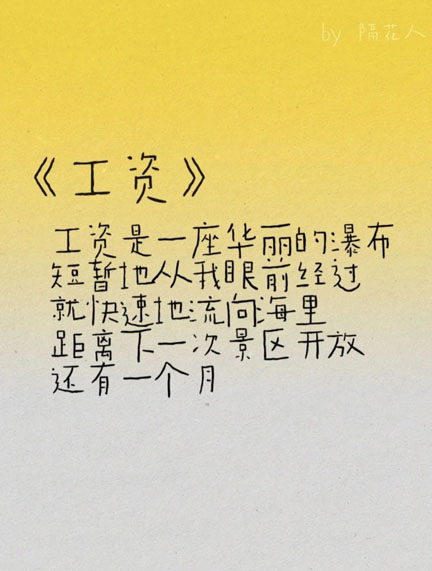 by 隔花人
《工资》
工资是一座华丽的瀑布
短暂地从我眼前经过
就快速地流向海里
距离下一次景区开放
还有一个月